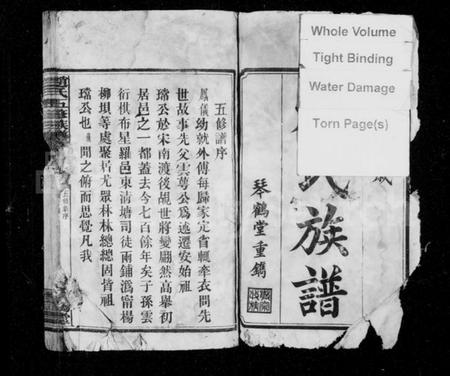 Whole Volume
Tight Binding
Water Damage
Torn Page(s)
氏族譜
琴鶴堂重鐫
五修譜序
鳳儀幼就外傅每歸家定省輒牽衣問先
世故事先父雲蕚公為述遷安始祖
璫公於宋南渡後覩世將變翩然高舉初
居邑之一都蓋去今七百餘年矣子孫雲
衍棋布星羅邑東清塘司徒兩鋪為甯楊
柳垻等處聚居尤眾林林總總固皆祖
璫公也儀聞之俯而思覺凡我
趙氏五修族譜
五修序